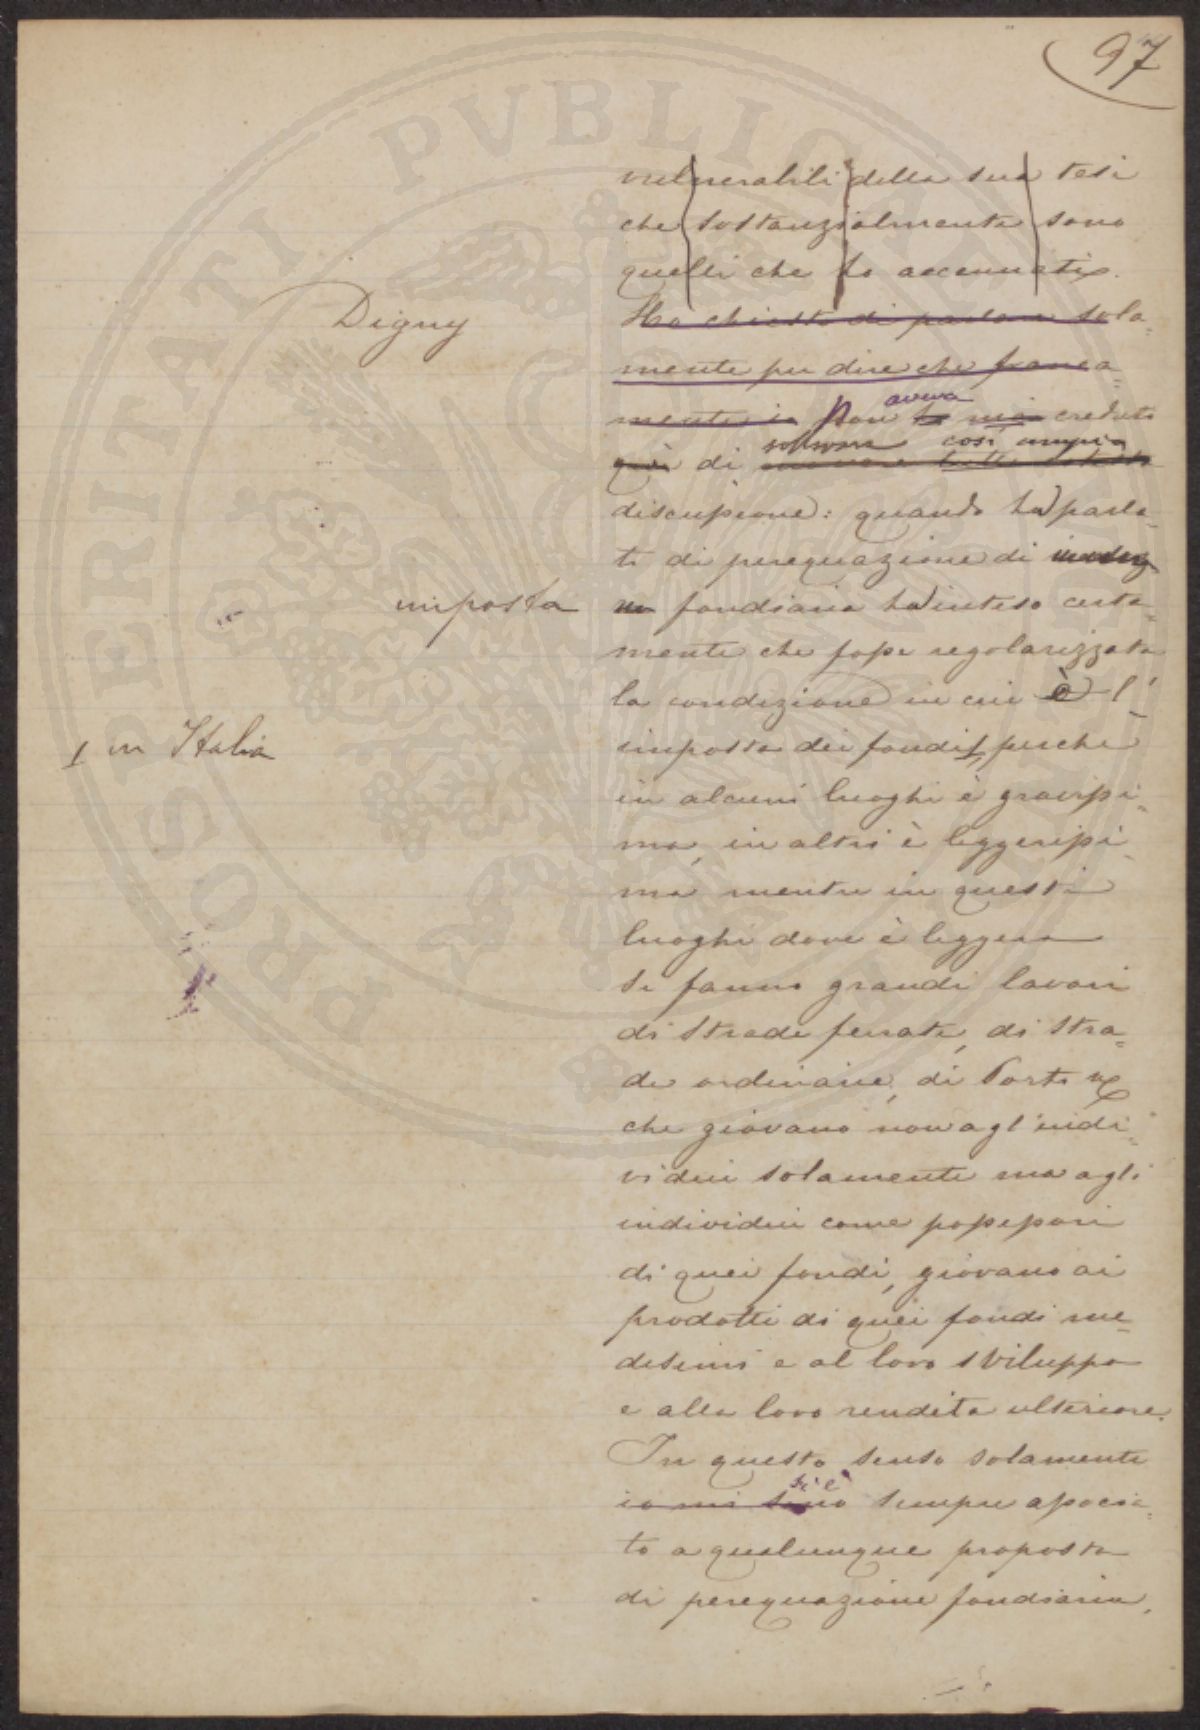 97
vulnerabili della sua tesi
che sostanzialmente sono
quelli che fo accennati.
Digny
Ho chiesto di parlare sola=
mente per dire che franca=
mente io Non ho mai creduto
aveva
già di
sollevare così ampia
discussione: quando ha parla=
to di perequazione di
imposta
fondiaria ha inteso certa=
mente che fosse regolarizzata
la condizione in cui è l'
imposta dei fondi perchè
1 in Italia
in alcuni luoghi è gravissi=
ma, in altri è leggerissi=
ma mentre in questi
luoghi dove è leggera
si fanno grandi lavori
di strade ferrate, di stra=
de ordinarie, di Porti
che giovano non agl'indi=
vidui solamente ma agli
individui come possessori
di quei fondi, giovano ai
prodotti di quei fondi me=
desimi e al loro sviluppo
e alla loro rendita ulteriore.
In questo senso solamente
si è
io mi sono sempre associa=
to a qualunque proposta
di perequazione fondiaria,
PROSPERITATI PVBLICAE